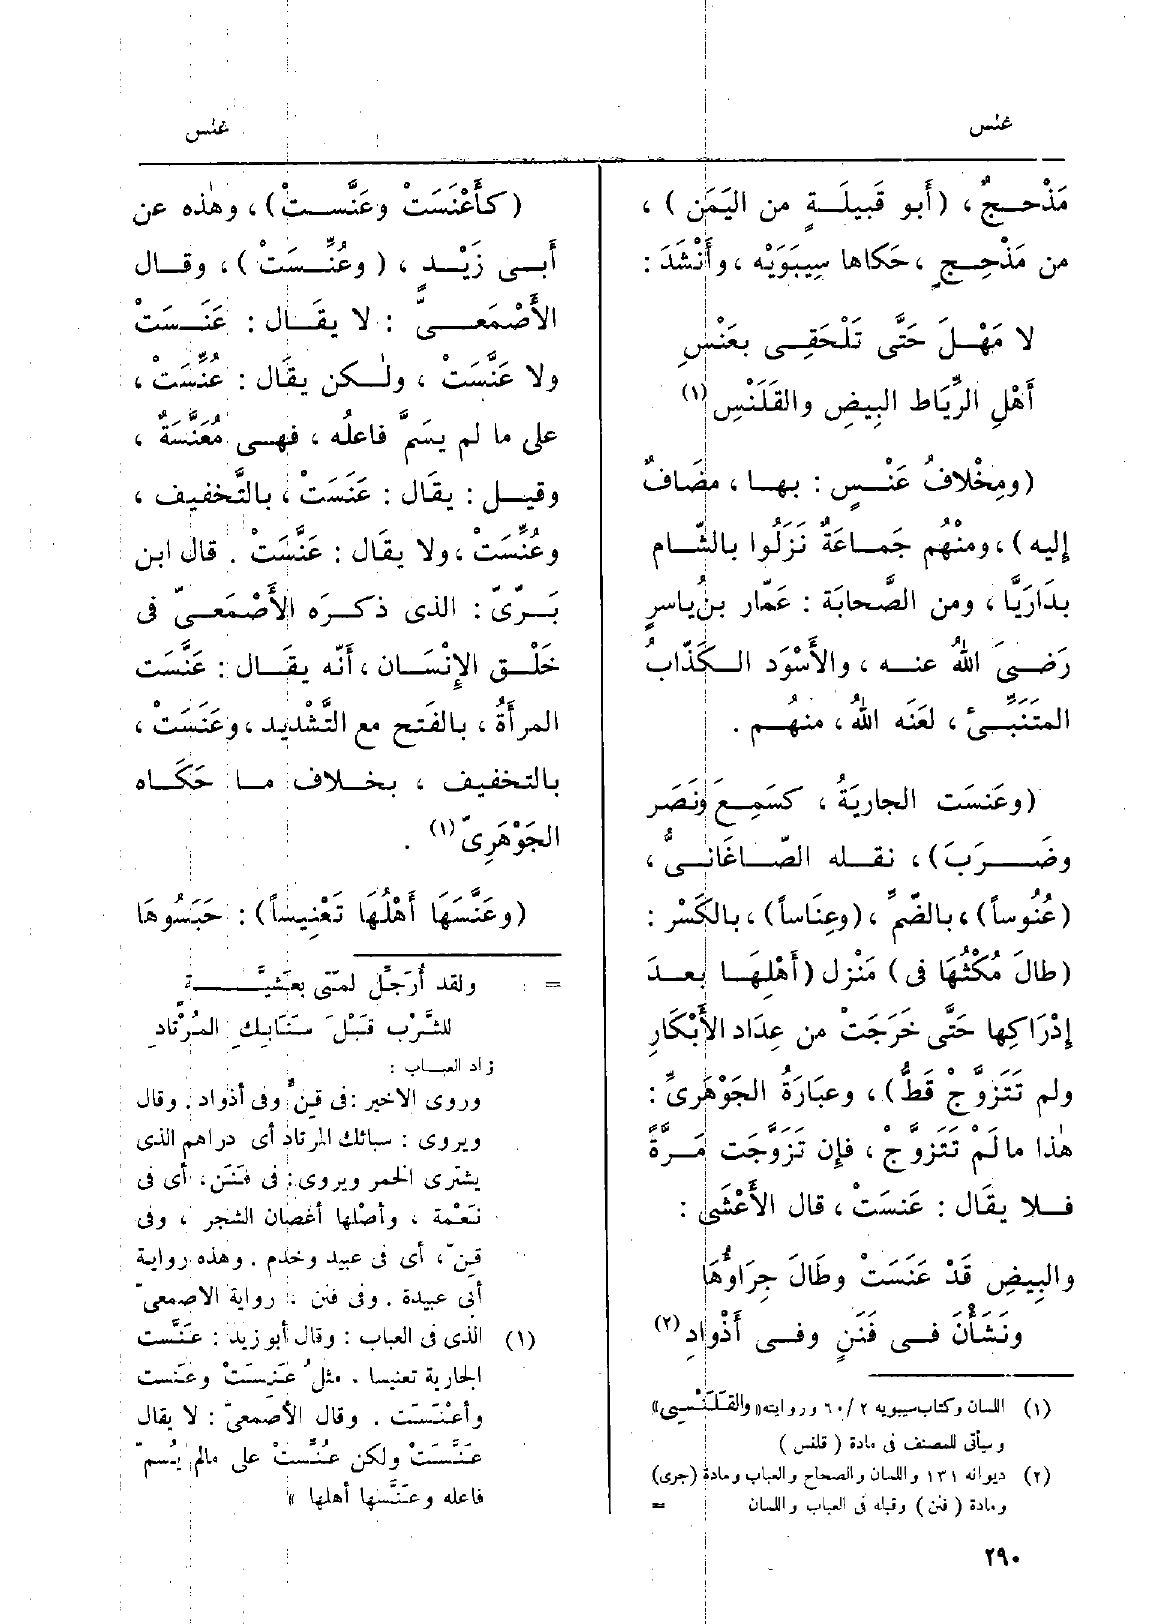 عنس
عنس
مَذْحِجٌ، (أَبو قَبِيلَةٍ من اليَمَن)،
من مَذْحِجٍ، حَكاها سِيبَوَيْه، وأَنْشَدَ:
لا مَهْلَ حَتَّى تَلْحَقِى بعَنْسِ
أَهْلِ الرِّيَاط البِيضِ والقَلَنْسِ(١)
(ومِخْلافُ عَنْسٍ: بها، مضَافٌ
إليه)، ومنْهُم جَمَاعَةٌ نَزَلُوا بالشّام
بدَارَيَّا، ومن الصَّحابَة: عَمّار بنُ ياسرٍ
رَضىَ اللهُ عنه، والأَسْوَد الكَذّابُ
المتَنَبِّئُ، لعَنَه اللهُ، منهُم.
(وعَنسَت الجاريَةُ، كسَمِعَ ونَصَر
وضَرَبَ)، نقله الصّاغَانىُّ،
(عُنُوساً)، بالضَّمِّ، (وعِنَاساً)، بالكَسْر:
(طالَ مُكْثُهَا فى) مَنْزل (أَهْلِهَا بعدَ
إِدْرَاكِها حَتَّى خَرَجَتْ من عِدَاد الأَبْكَارِ
ولم تَتَزوَّجْ قَطُّ)، وعبَارَةُ الجَوْهَرىِّ:
هٰذا ما لَمْ تَتَزوَّجْ، فإن تزَوَّجَت مَرّةً
فلا يقَال: عَنسَتْ، قال الأَعْشَى:
والبِيضِ قَدْ عَنَسَتْ وطَالَ جِرَاؤُهَا
ونَشَأْنَ فى فَنَنٍ وفى أَذْوادِ(٢)
(١) اللسان وكتاب سيبويه ٢/٦٠ وروايته «والقَلَنْسِى»
وسيأتى للمصنف فى مادة (قلنس)
(٢) ديوانه ١٣١ واللسان والصحاح والعباب ومادة (جرى)
ومادة (فنن) وقبله فى العباب واللسان =
(كأَعْنَسَتْ وعَنَّستْ)، وهٰذه عن
أَبى زَيْدٍ، (وعُنِّسَتْ)، وقال
الأَصْمَعىُّ: لا يقَال: عَنَسَتْ
ولا عَنَّسَتْ، ولٰكن يقَال: عُنِّسَتْ،
على ما لم يسَمَّ فاعلُه، فهى مُعَنَّسَةٌ،
وقيل: يقَال: عَنَسَتْ، بالتَّخفيف،
وعُنِّسَتْ، ولا يقَال: عَنَّسَتْ. قال ابن
بَرّىّ: الذى ذكَرَه الأَصْمَعىّ فى
خَلْق الإِنْسَان، أَنّه يقَال: عَنَّسَت
المرأَةُ، بالفَتح مع التَّشْديد، وعَنَسَتْ،
بالتخفيف، بخلاف ما حَكَاه
الجَوْهَرِىّ(١).
(وعَنَّسَهَا أَهْلُهَا تَعْنِيساً): حَبَسُوهَا
= ولقد أُرَجِّل لمتى بعَشيَّةٍ
للشَّرْب قَبْلَ سَنَابِكِ المُرْتادِ
زاد العباب:
وروى الأخير: فى قِنٍّ وفى أذواد. وقال
ويروى: سبائك المرتاد أى دراهم الذى
يشترى الخمر ويروى: فى فَنَن، أى فى
نَعْمة، وأصْلها أغصان الشجر، وفى
قِنّ، أى فى عبيد وخدم. وهذه رواية
أبى عبيدة. وفى فنن: رواية الأصمعىّ
(١) الذى فى العباب: وقال أبو زيد: عَنَّست
الجارية تعنيسا. مثلُ عَنِسَتْ وعَنَست
وأعْنَسَت. وقال الأصمعىّ: لا يقال
عَنَّسَتْ ولكن عُنِّسَتْ على مالم يُسمّ
فاعله وعَنَّسها أهلها»
٢٩٠